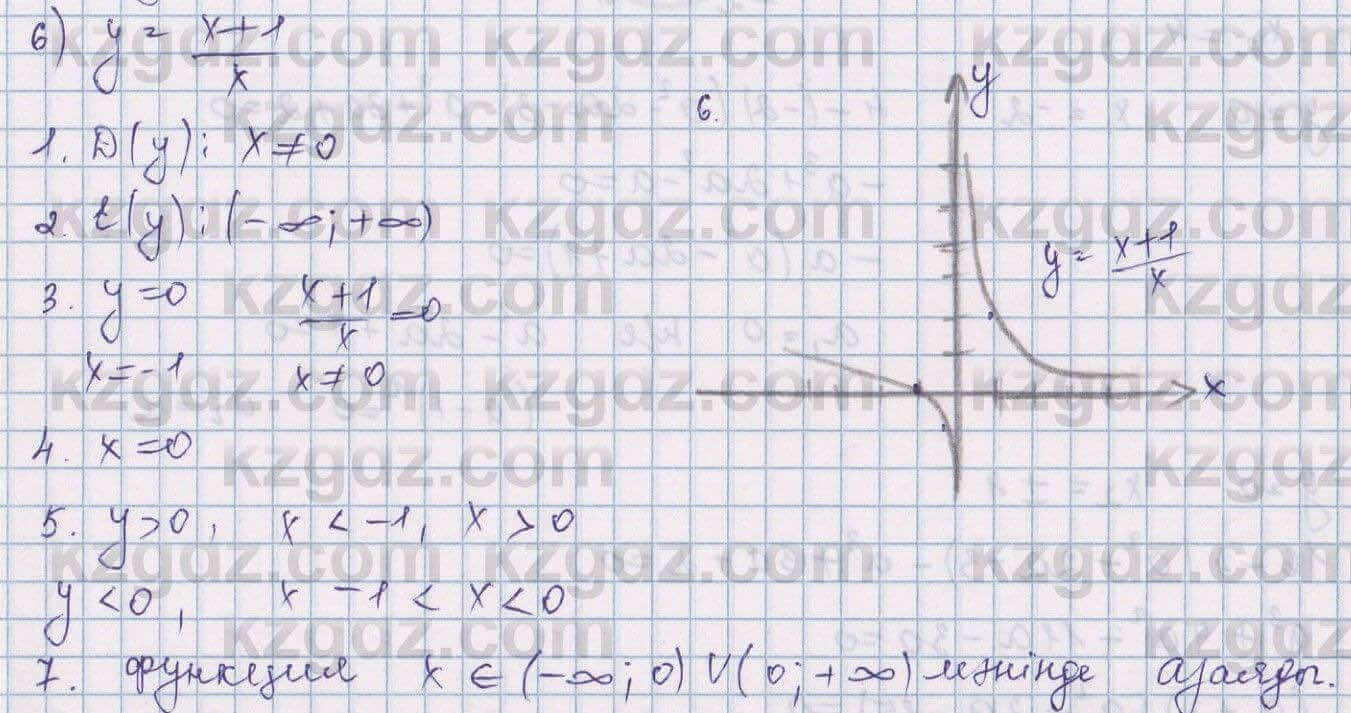 б) y = x+1/x
1. D(y): x ≠ 0
2. E(y): (-∞; +∞)
3. y = 0 x+1/x = 0
x = -1 x ≠ 0
4. x = 0
5. y > 0, x < -1, x > 0
y < 0, x -1 < x < 0
6.
y
y = x+1/x
x
7. функция x ∈ (-∞; 0) ∪ (0; +∞) мәнінде азаяды.
kzgdz.com